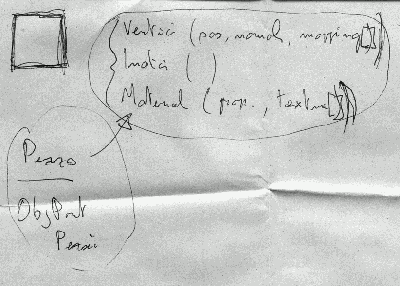 Vertici (pos, normal, mapping[])
Indici ( )
Material (prop., texture[])
Pezzo
ObjPart
Pezzi